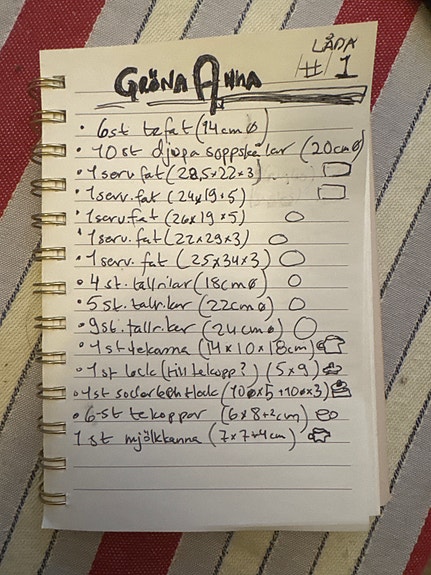 LÅDA
# 1
GRÖNA ANNA
• 6 st tefat (14cm ø)
• 10 st djupa soppskålar (20cm ø)
• 1 serv. fat (28,5×22×3)
• 1 serv. fat (24×19×5)
• 1 serv. fat (26×19×5)
• 1 serv. fat (22×29×3)
• 1 serv. fat (25×34×3)
• 4 st. tallrikar (18cm ø)
• 5 st. tallrikar (22cm ø)
• 9 st. tallrikar (24cm ø)
• 1 st tekanna (14×10×18cm)
• 1 st lock (till tekopp?) (5×9)
• 1 st socker (10ø×5+10ø×3)
• 6 st tekoppar (6×8+2cm)
1 st mjölkkanna (7×7+4cm)